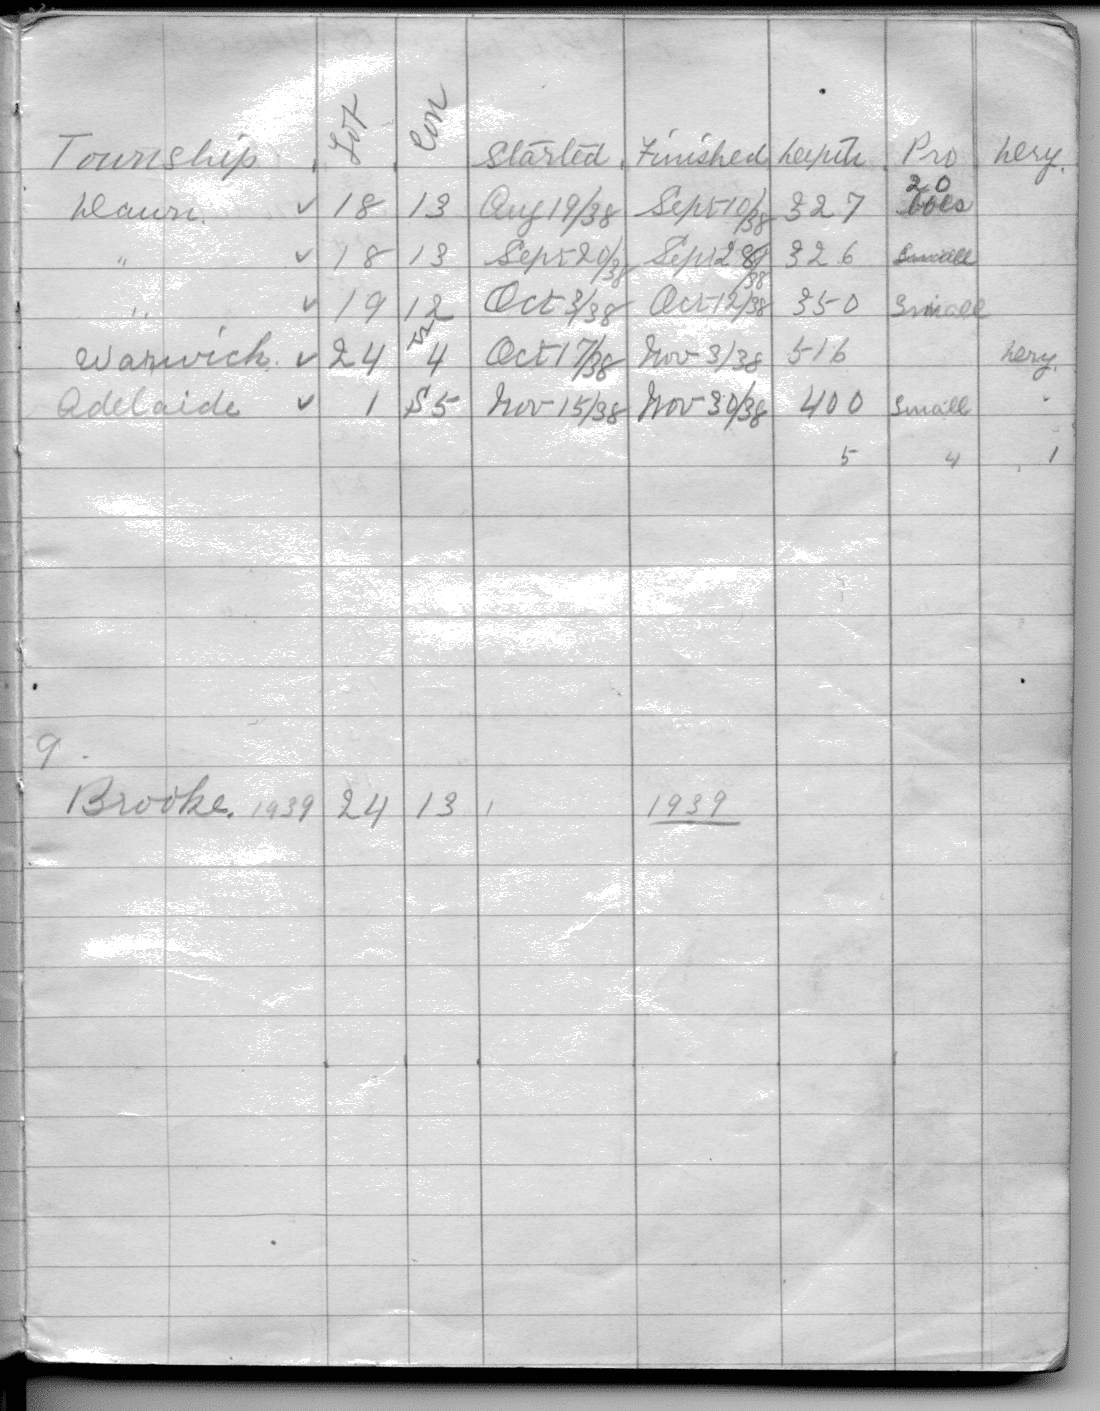 Township Lot Con Started Finished Depth Pro Dry.
Dawn. ✓ 18 13 Aug 19/38 Sept 10/38 327 20 bbls
" ✓ 18 13 Sept 20/38 Sept 28/38 326 Small
" ✓ 19 12 Oct 3/38 Oct 12/38 350 Small
Warwick. ✓ 24 4 Oct 17/38 Nov 3/38 516 Dry.
Adelaide ✓ 1 S5 Nov 15/38 Nov 30/38 400 Small
5 4 1
9
Brooke. 1939 24 13 1939